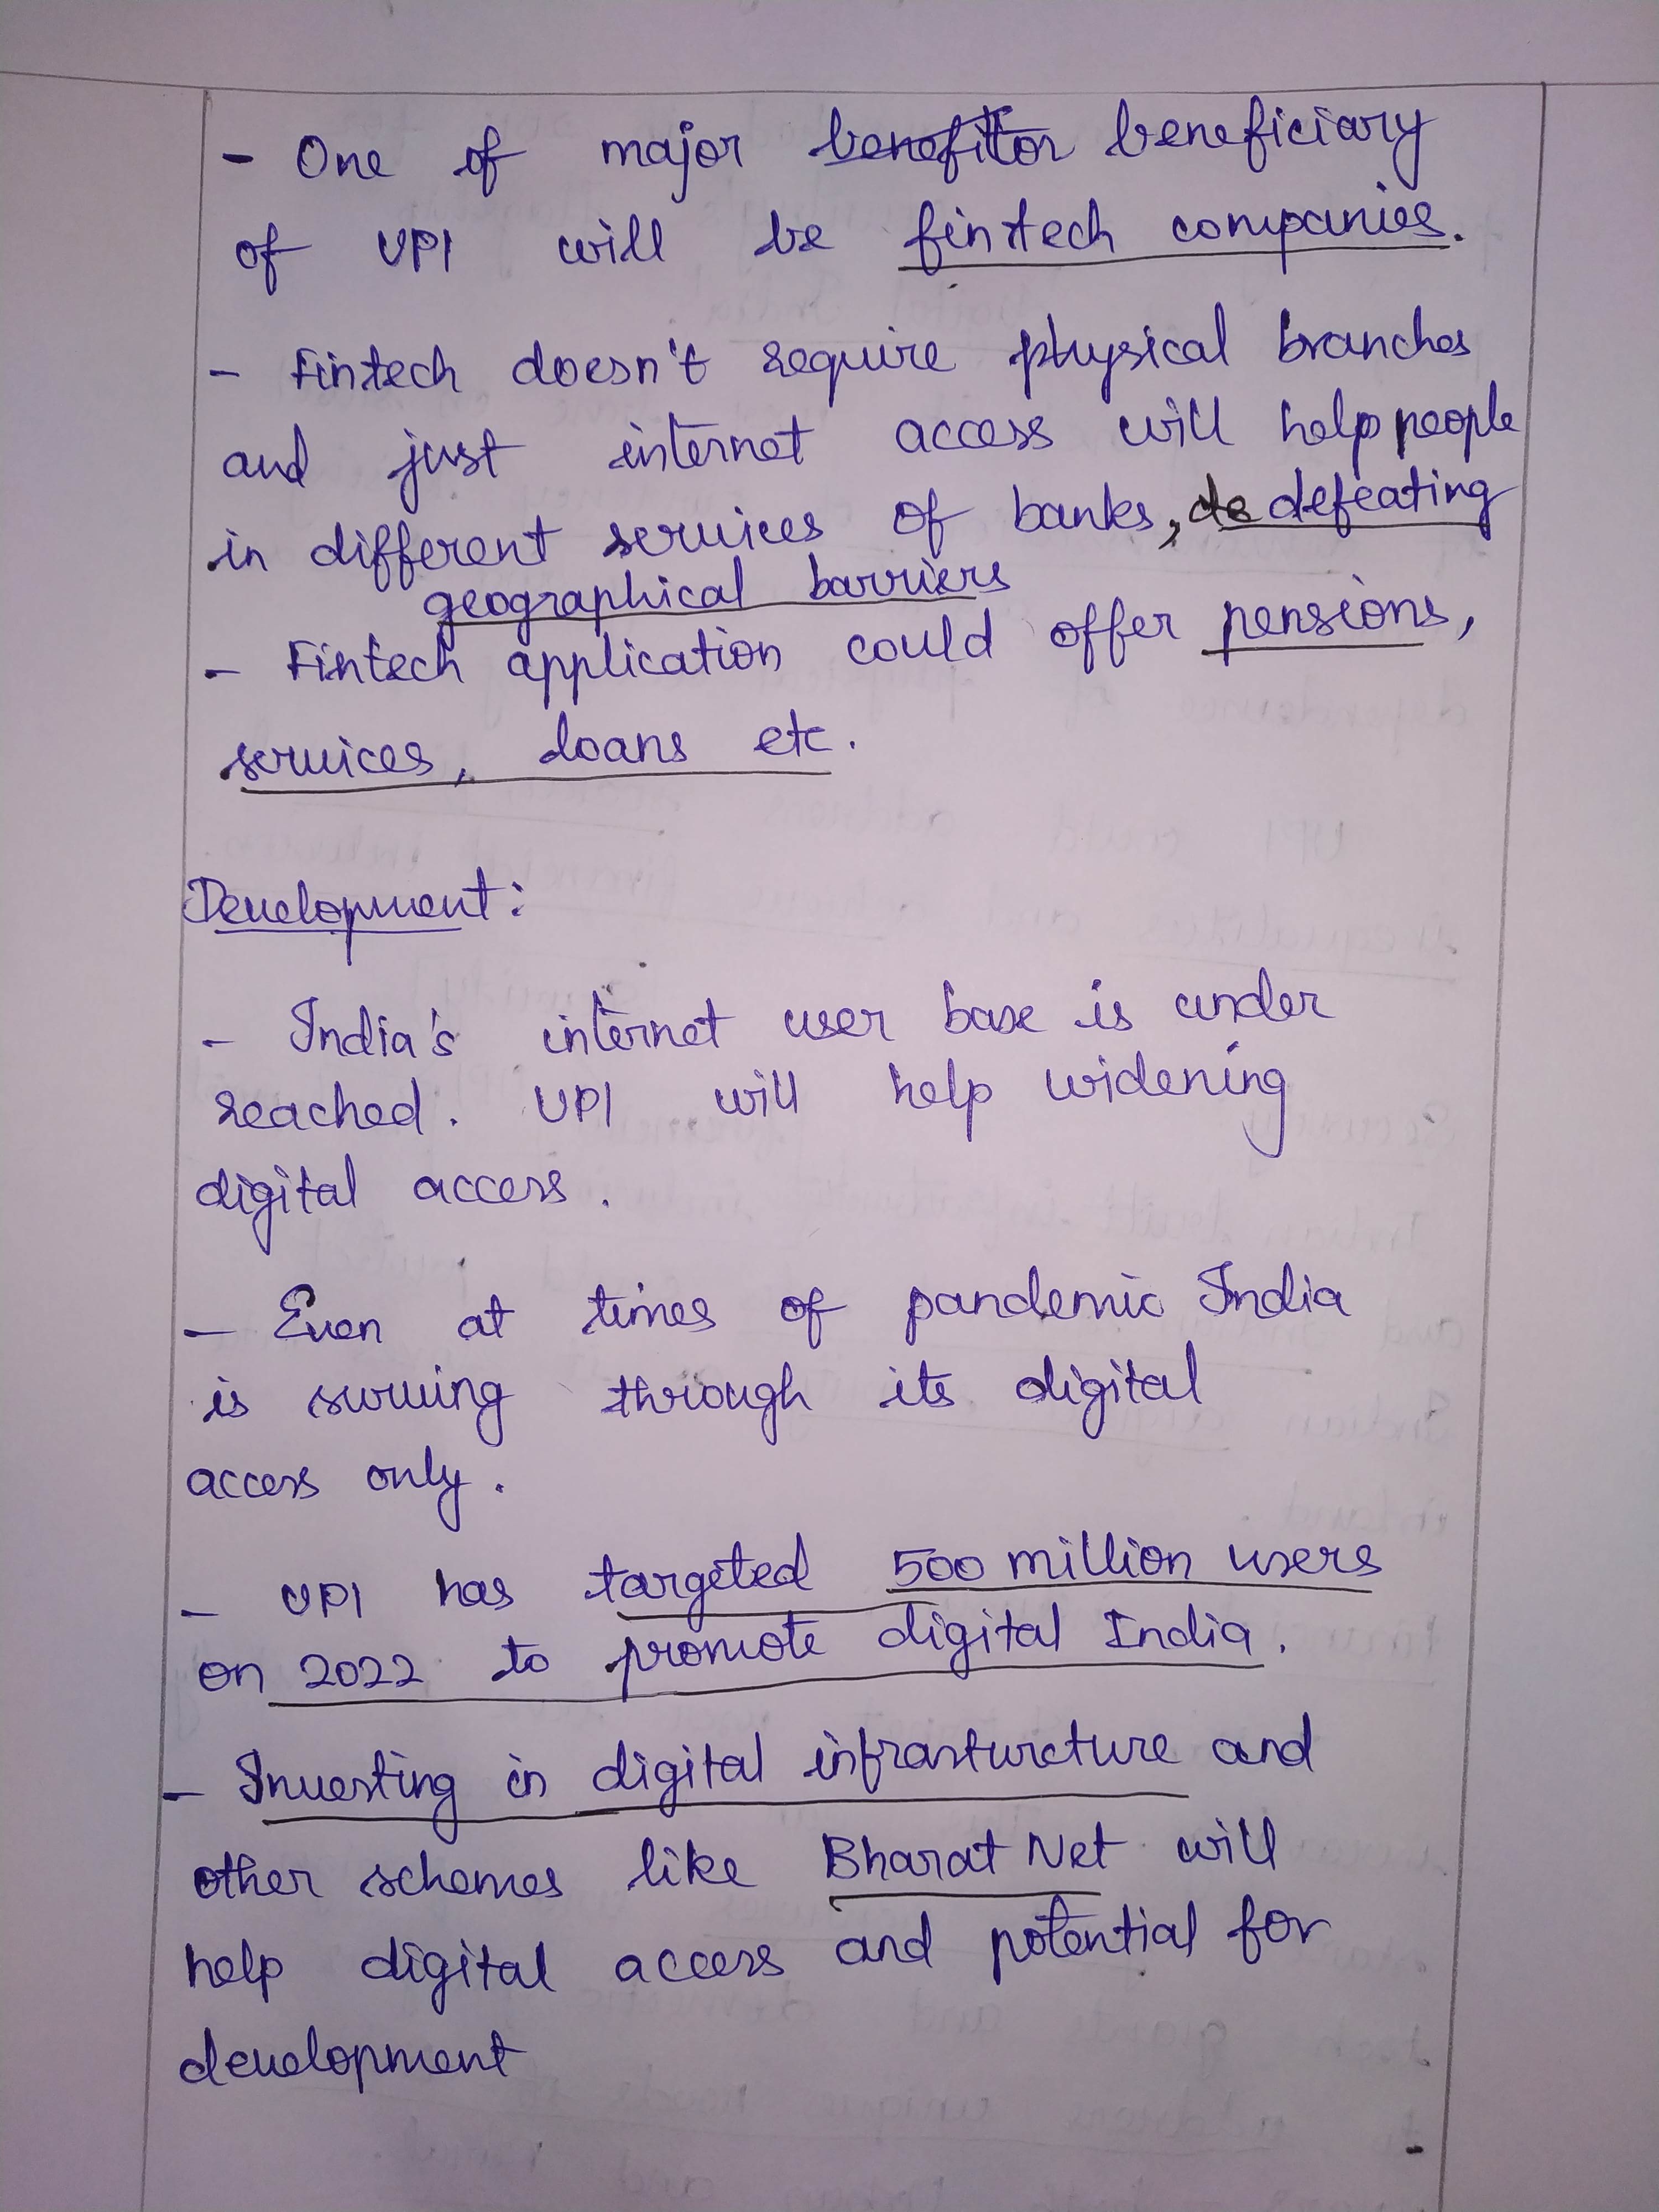 - One of major benefittor beneficiary
of UPI will be fintech companies.
- Fintech doesn't require physical branches
and just internet access will help people
in different services of banks, de defeating
geographical barriers
- Fintech application could offer pensions,
services, loans etc.
Development:
- India's internet user base is under
reached. UPI will help widening
digital access.
- Even at times of pandemic India
is surving through its digital
access only.
- UPI has targeted 500 million users
on 2022 to promote digital India.
- Investing in digital infrasturcture and
other schemes like Bharat Net will
help digital access and potential for
development